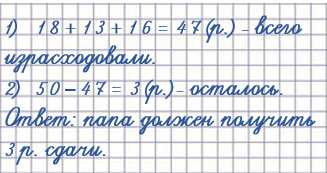 1) 18+13+16=47(р.) – всего
израсходовали.
2) 50–47=3(р.) – осталось.
Ответ: папа должен получить
3 р. сдачи.